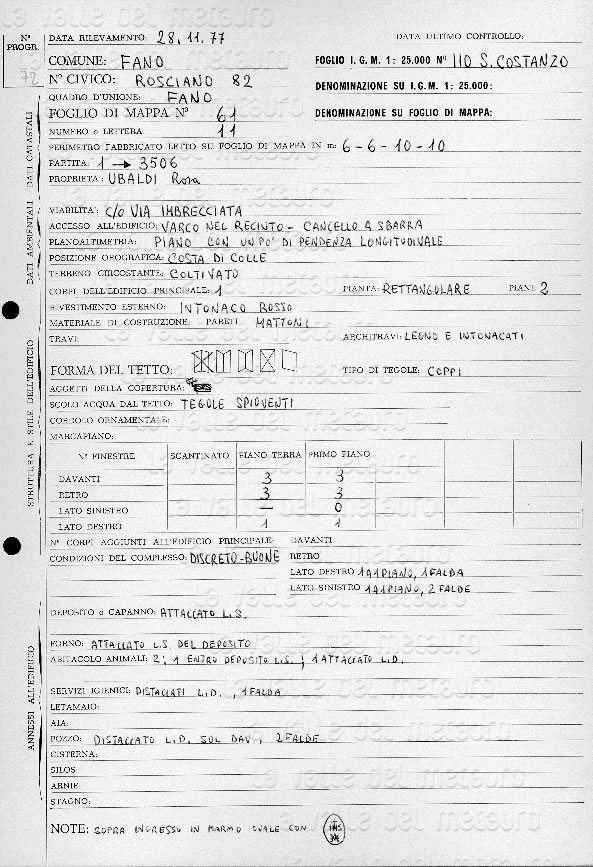 N° PROGR. 72
DATA RILEVAMENTO: 28.11.77 DATA ULTIMO CONTROLLO:
COMUNE: FANO FOGLIO I.G.M. 1: 25.000 N° 110 S. COSTANZO
N° CIVICO: ROSCIANO 82 DENOMINAZIONE SU I.G.M. 1: 25.000:
QUADRO D'UNIONE: FANO
FOGLIO DI MAPPA N° 61 DENOMINAZIONE SU FOGLIO DI MAPPA:
NUMERO o LETTERA 11
PERIMETRO FABBRICATO LETTO SU FOGLIO DI MAPPA IN m: 6-6-10-10
PARTITA: 1 → 3506
PROPRIETA': UBALDI Rosa
DATI CATASTALI
VIABILITA': C/O VIA IMBRECCIATA
ACCESSO ALL'EDIFICIO: VARCO NEL RECINTO - CANCELLO A SBARRA
PLANOALTIMETRIA: PIANO CON UN PO' DI PENDENZA LONGITUDINALE
POSIZIONE OROGRAFICA: COSTA DI COLLE
TERRENO CIRCOSTANTE: COLTIVATO
DATI AMBIENTALI
CORPI DELL'EDIFICIO PRINCIPALE: 1 PIANTA: RETTANGOLARE PIANI: 2
RIVESTIMENTO ESTERNO: INTONACO ROSSO
MATERIALE DI COSTRUZIONE: PARETI: MATTONI
TRAVI: ARCHITRAVI: LEGNO E INTONACATI
FORMA DEL TETTO: TIPO DI TEGOLE: COPPI
AGGETTI DELLA COPERTURA:
SCOLO ACQUA DAL TETTO: TEGOLE SPIOVENTI
CORDOLO ORNAMENTALE:
MARCAPIANO:
N° FINESTRE SCANTINATO PIANO TERRA PRIMO PIANO
DAVANTI 3 3
RETRO 3 3
LATO SINISTRO — 0
LATO DESTRO 1 1
STRUTTURA E STILE DELL'EDIFICIO
N° CORPI AGGIUNTI ALL'EDIFICIO PRINCIPALE: DAVANTI
CONDIZIONI DEL COMPLESSO: DISCRETO-BUONE RETRO
LATO DESTRO 1 A 1 PIANO, 1 FALDA
LATO SINISTRO 1 A 1 PIANO, 2 FALDE
DEPOSITO o CAPANNO: ATTACCATO L.S.
FORNO: ATTACCATO L.S. DEL DEPOSITO
ABITACOLO ANIMALI: 2; 1 ENTRO DEPOSITO L.S.; 1 ATTACCATO L.D.
SERVIZI IGIENICI: DISTACCATI L.D., 1 FALDA
LETAMAIO:
AIA:
POZZO: DISTACCATO L.D. SUL DAV., 2 FALDE
CISTERNA:
SILOS:
ARNIE:
STAGNO:
ANNESSI ALL'EDIFICIO
NOTE: SOPRA INGRESSO IN MARMO OVALE CON IHS
la valle del metauro